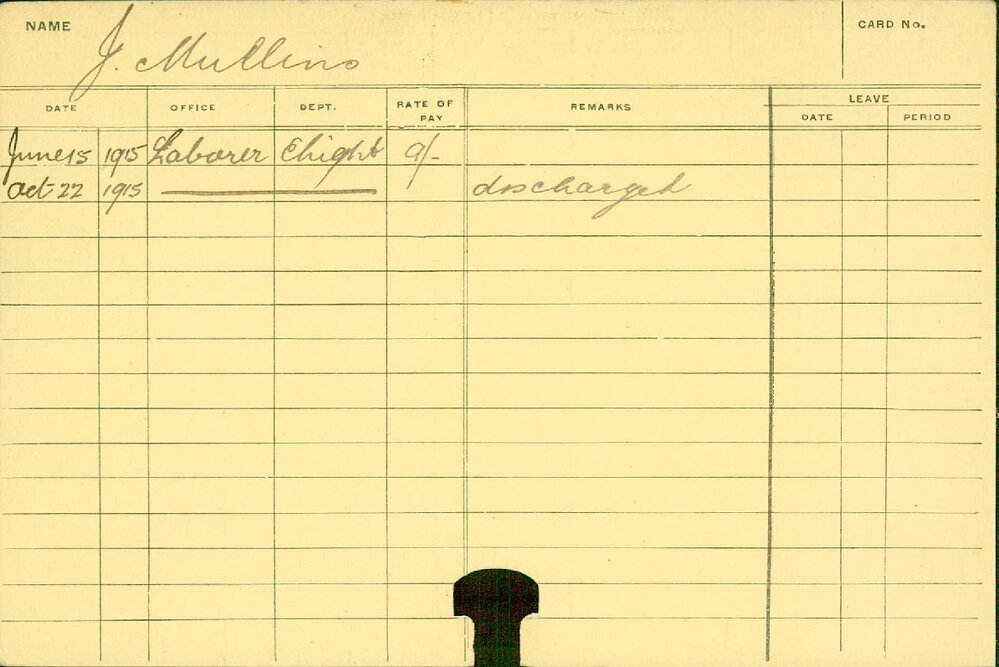 NAME J. Mullins CARD No.
DATE OFFICE DEPT. RATE OF PAY REMARKS LEAVE
DATE PERIOD
June 15 1915 Laborer 9/-
Oct 22 1915 discharged